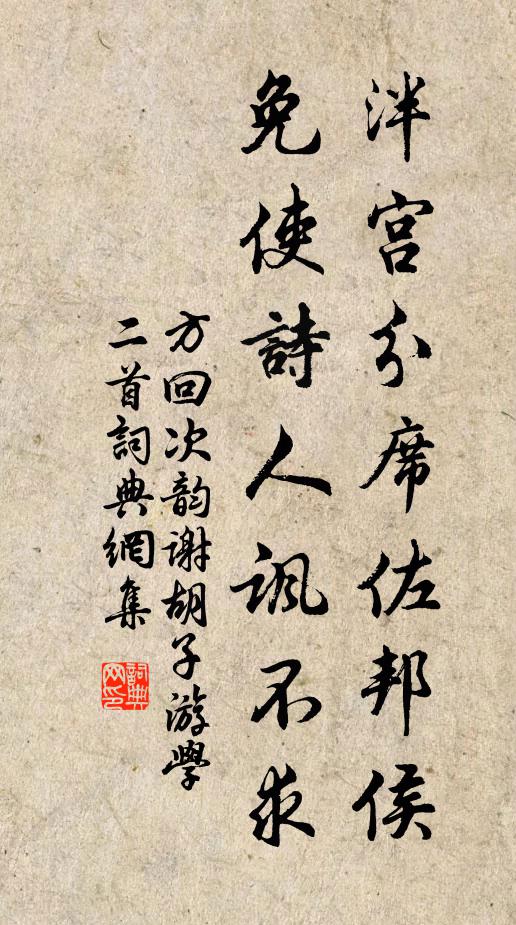 泮宮分席佐邦侯
免使詩人諷不求
方回次韵謝胡子游學
二首詞典網集
詞典
网印